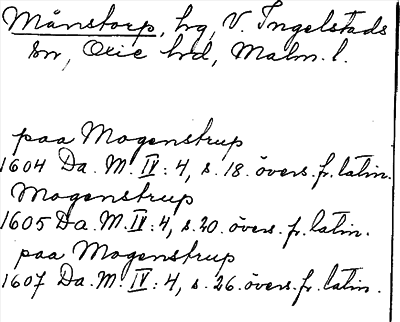 Månstorp, hg, V. Ingelstads
sn, Oxie hrd, Malm. l.
paa Mogenstrup
1604 Da. M. IV: 4, s. 18. övers. fr. latin.
Mogenstrup
1605 Da. M. IV: 4, s. 20. övers. fr. latin.
paa Mogenstrup
1607 Da. M. IV: 4, s. 26. övers. fr. latin.